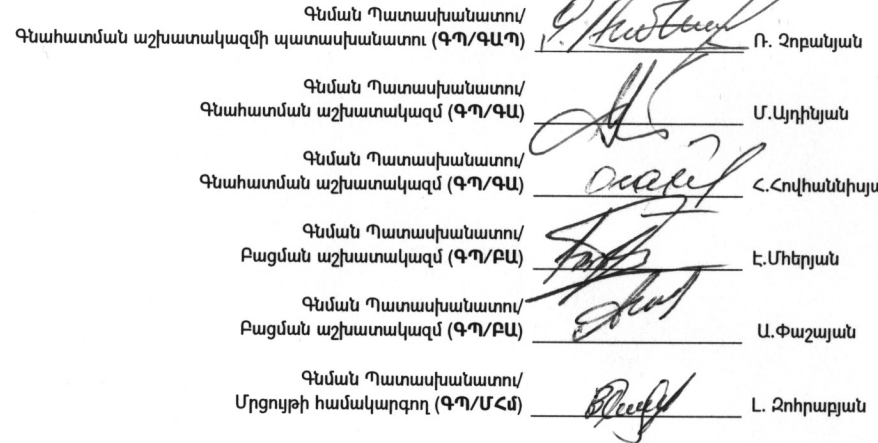 Գնման Պատասխանատու/
Գնահատման աշխատակազմի պատասխանատու (ԳՊ/ԳԱՊ) Ռ. Չոբանյան
Գնման Պատասխանատու/
Գնահատման աշխատակազմ (ԳՊ/ԳԱ) Մ.Այդինյան
Գնման Պատասխանատու/
Գնահատման աշխատակազմ (ԳՊ/ԳԱ) Հ.Հովհաննիսյա
Գնման Պատասխանատու/
Բացման աշխատակազմ (ԳՊ/ԲԱ) Է.Մհերյան
Գնման Պատասխանատու/
Բացման աշխատակազմ (ԳՊ/ԲԱ) Ա.Փաշայան
Գնման Պատասխանատու/
Մրցույթի համակարգող (ԳՊ/ՄՀմ) Լ. Զոհրաբյան